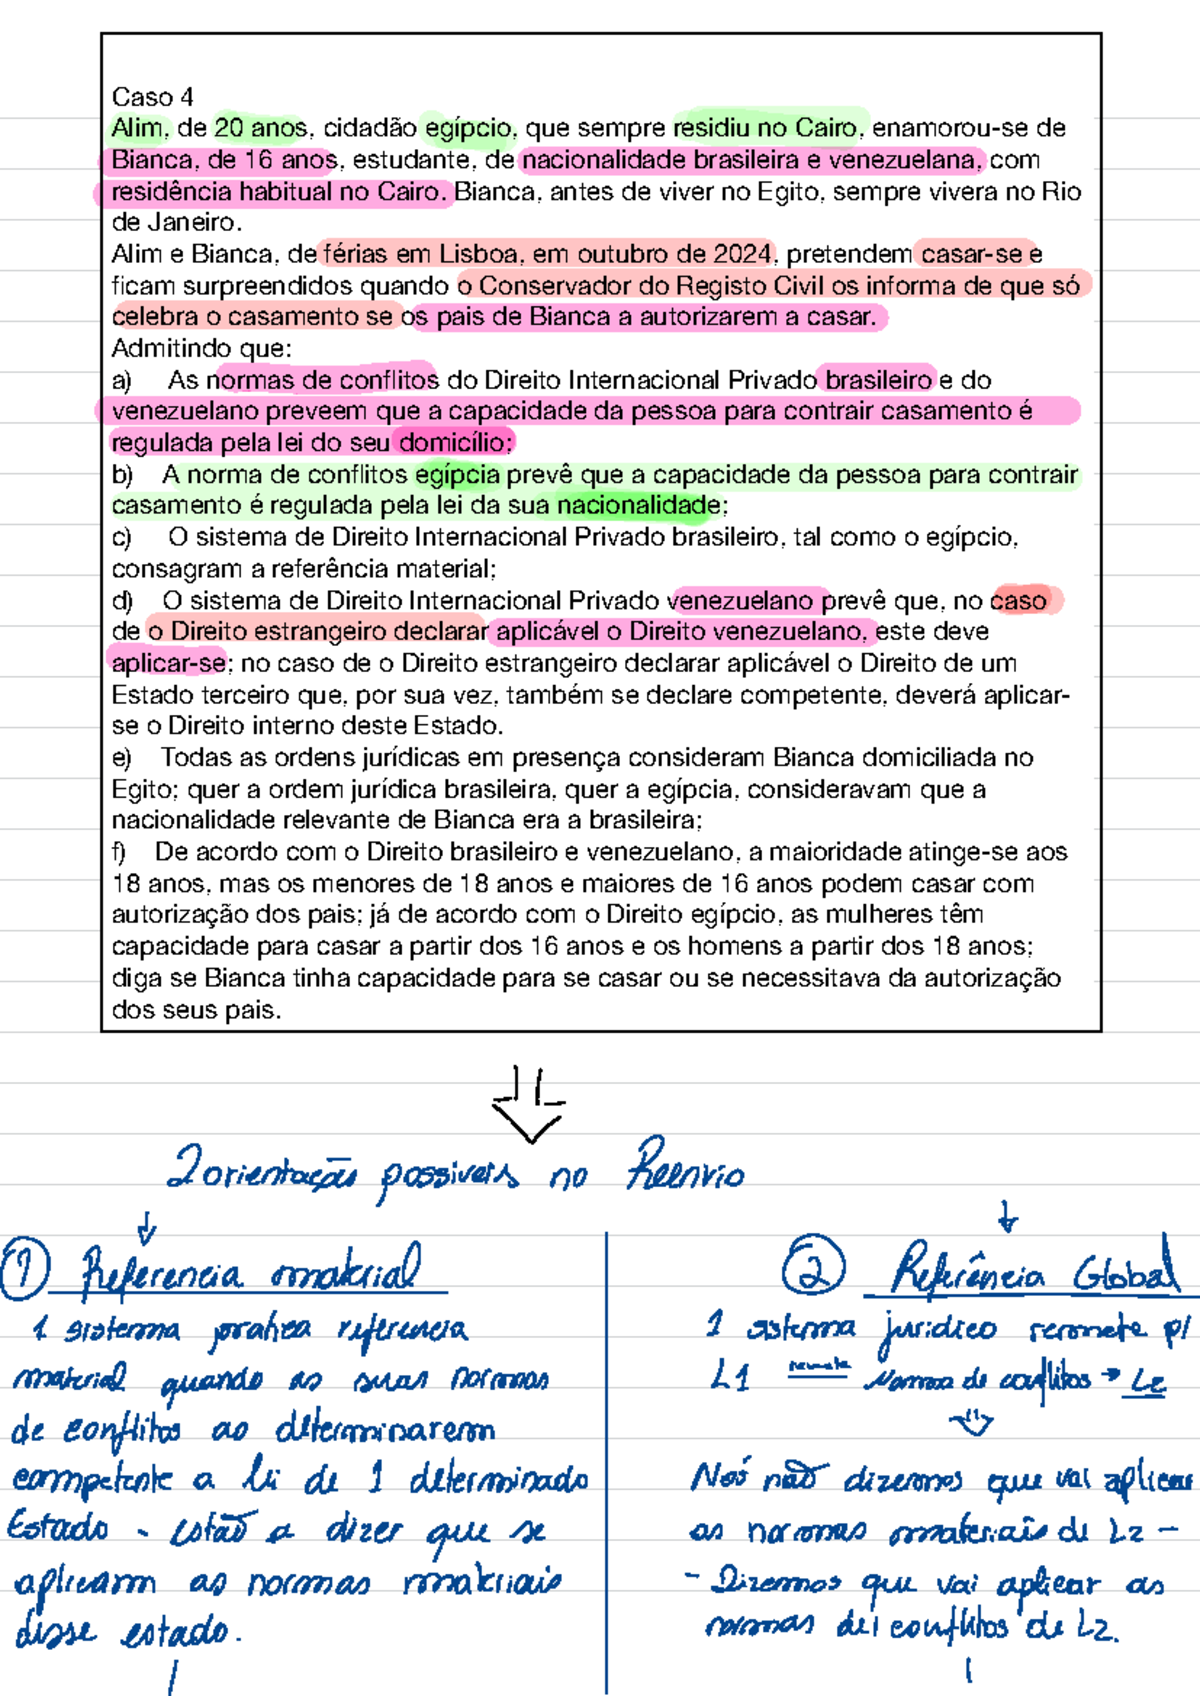 Caso 4
Alim, de 20 anos, cidadão egípcio, que sempre residiu no Cairo, enamorou-se de
Bianca, de 16 anos, estudante, de nacionalidade brasileira e venezuelana, com
residência habitual no Cairo. Bianca, antes de viver no Egito, sempre vivera no Rio
de Janeiro.
Alim e Bianca, de férias em Lisboa, em outubro de 2024, pretendem casar-se e
ficam surpreendidos quando o Conservador do Registo Civil os informa de que só
celebra o casamento se os pais de Bianca a autorizarem a casar.
Admitindo que:
a) As normas de conflitos do Direito Internacional Privado brasileiro e do
venezuelano preveem que a capacidade da pessoa para contrair casamento é
regulada pela lei do seu domicílio;
b) A norma de conflitos egípcia prevê que a capacidade da pessoa para contrair
casamento é regulada pela lei da sua nacionalidade;
c) O sistema de Direito Internacional Privado brasileiro, tal como o egípcio,
consagram a referência material;
d) O sistema de Direito Internacional Privado venezuelano prevê que, no caso
de o Direito estrangeiro declarar aplicável o Direito venezuelano, este deve
aplicar-se; no caso de o Direito estrangeiro declarar aplicável o Direito de um
Estado terceiro que, por sua vez, também se declare competente, deverá aplicar-
se o Direito interno deste Estado.
e) Todas as ordens jurídicas em presença consideram Bianca domiciliada no
Egito; quer a ordem jurídica brasileira, quer a egípcia, consideravam que a
nacionalidade relevante de Bianca era a brasileira;
f) De acordo com o Direito brasileiro e venezuelano, a maioridade atinge-se aos
18 anos, mas os menores de 18 anos e maiores de 16 anos podem casar com
autorização dos pais; já de acordo com o Direito egípcio, as mulheres têm
capacidade para casar a partir dos 16 anos e os homens a partir dos 18 anos;
diga se Bianca tinha capacidade para se casar ou se necessitava da autorização
dos seus pais.
2 orientações possíveis no Reenvio
① Referencia material
1 sistema pratica referencia
material quando as suas normas
de conflitos ao determinarem
competente a lei de 1 determinado
Estado - estão a dizer que se
aplicam as normas materiais
desse estado.
② Referência Global
1 sistema jurídico remete p/
L1 remete Norma de conflitos → L2
Nós não dizemos que vai aplicar
as normas materiais de L2 -
- Dizemos que vai aplicar as
normas de conflitos de L2.